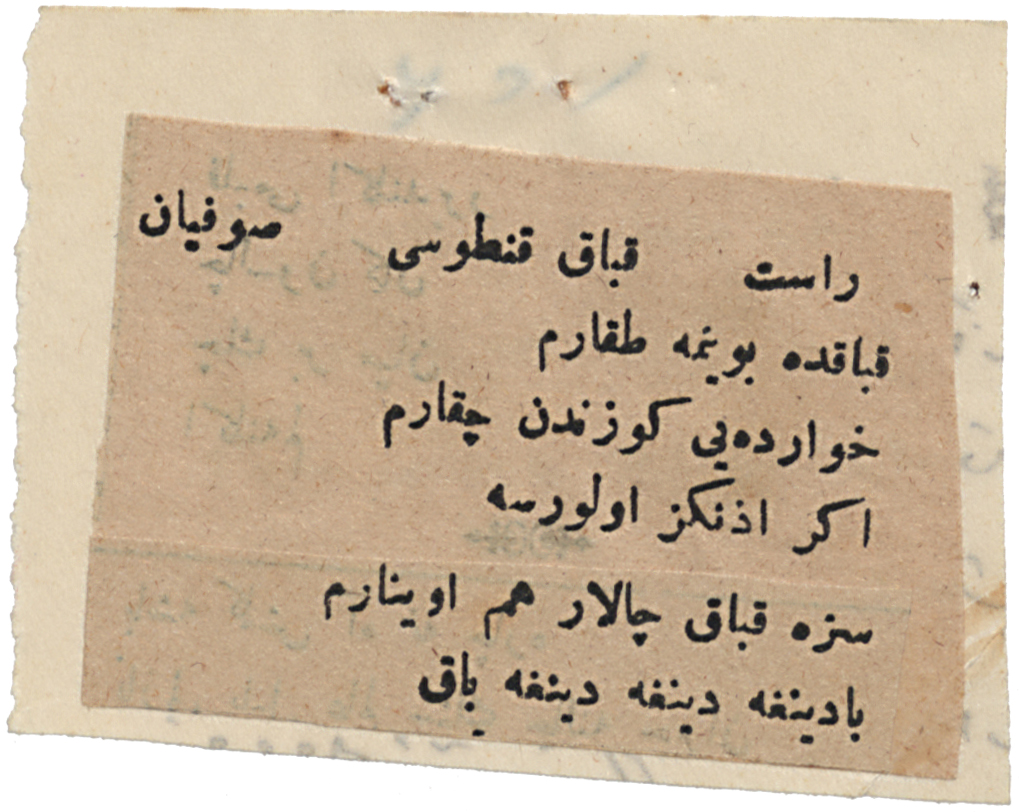 راست قباق قنطوسی صوفیان
قباقده بوینمه طقارم
خوارده‌یی کوزندن چقارم
اکر اذنکز اولورسه
سزه قباق چالار هم اوینارم
بادینغه دینغه دینغه باق